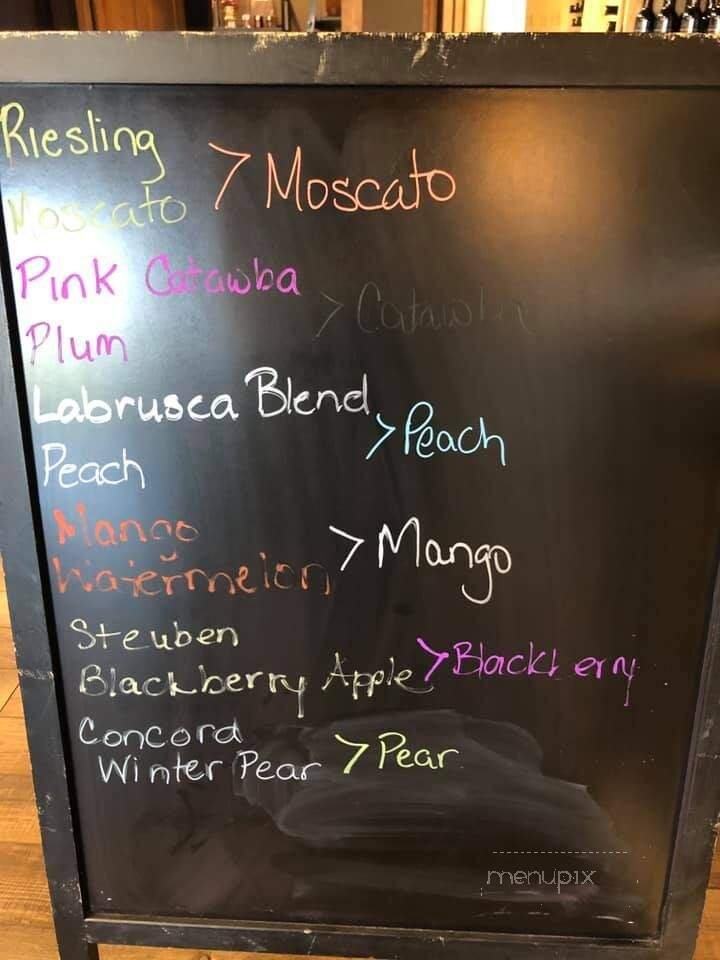 Riesling
Moscato
> Moscato
Pink Catawba
Plum
> Catawba
Labrusca Blend
Peach
> Peach
Mango
Watermelon
> Mango
Steuben
Blackberry Apple
> Blackberry
Concord
Winter Pear
> Pear
menupix